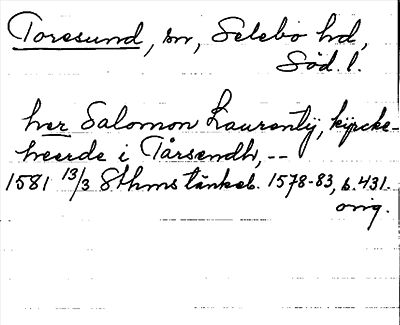 Toresund, sn, Selebo hd,
Söd. l.
her Salomon Laurentij, kyrcke-
heerde i Tårsendh, --
1581 13/3 Sthms tänkeb. 1578-83, b. 431.
orig.